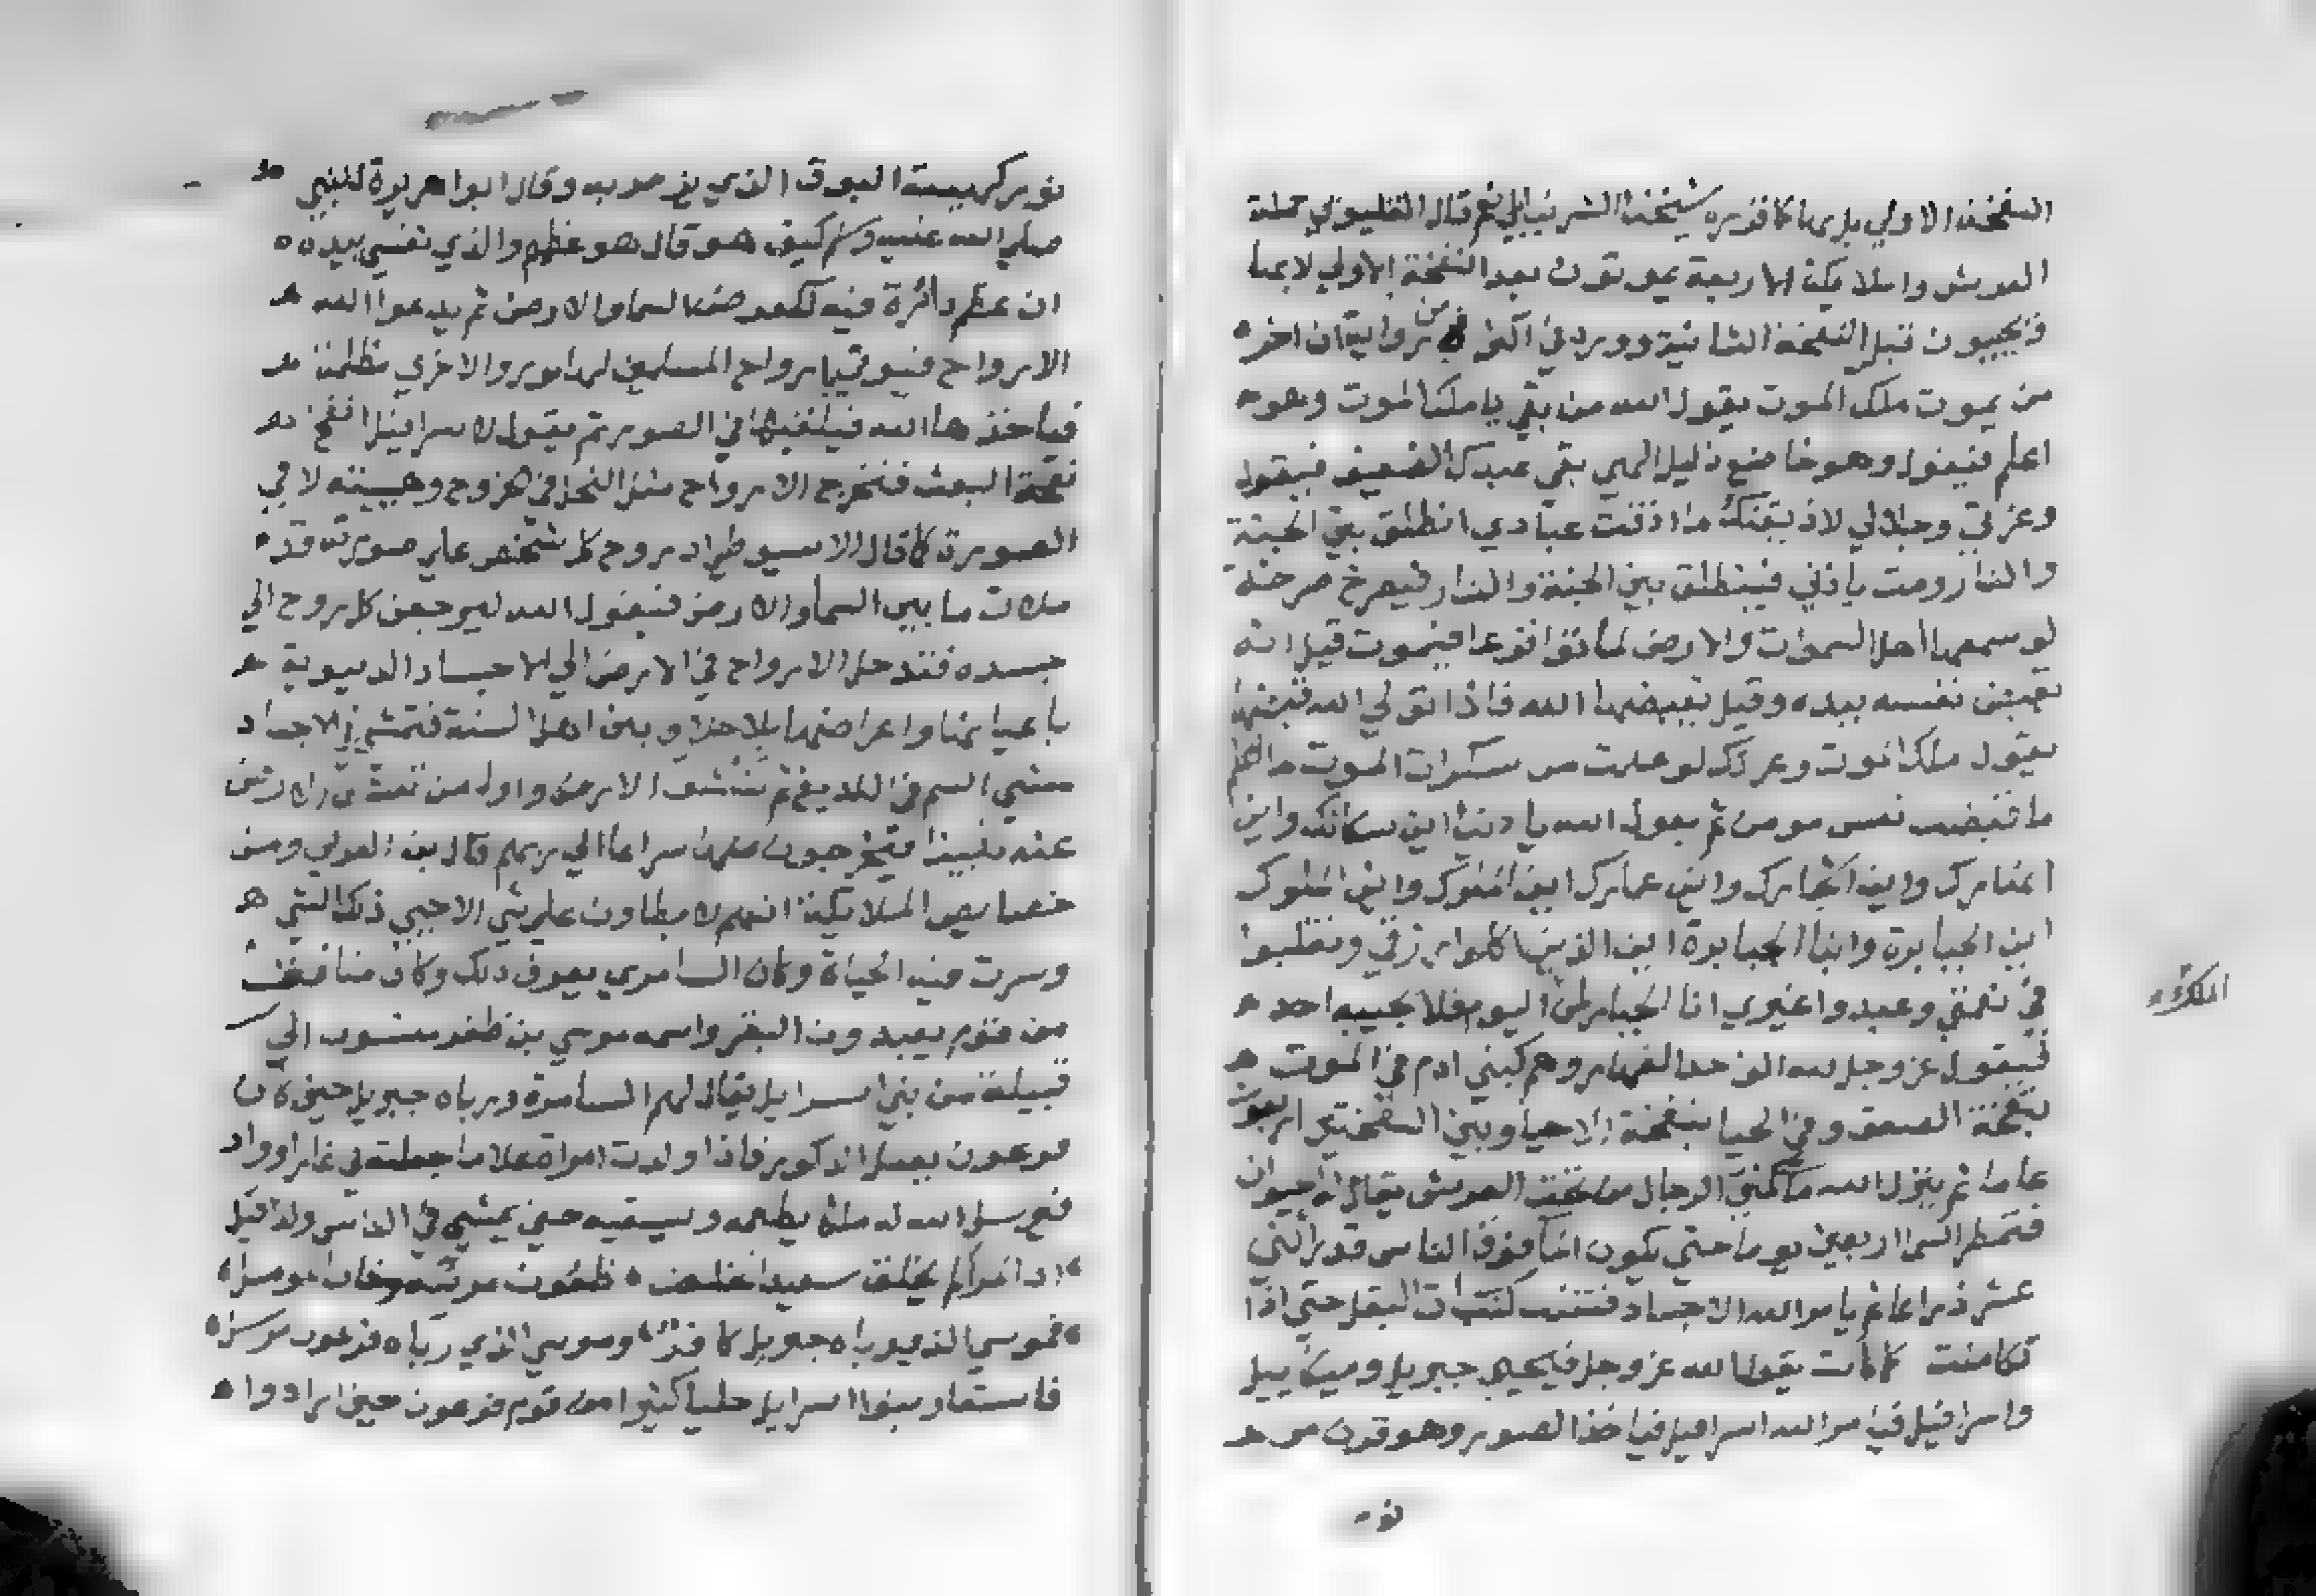 النفخة الاولي بل كما قرره شيخنا الشريف ثم قال القليوبي حملة
العرش والملايكة الاربعة يموتون بعد النفخة الاولي لا بها
فيحيون قبل النفخة الثانية وورد في من رواية ان اخر
من يموت ملك الموت يقول الله من بقي يا ملك الموت وهو
اعلم فيقول وهو خاضع ذليل الهي بقي عبدك الضعيف فيقول
وعزتي وجلالي لاذيقنك ما اذقت عبادي انطلق بين الجنة
والنار ومت باذني فينطلق بين الجنة والنار فيصرخ صرخة
لو سمعها اهل السموات والارض لماتوا فزعا فيموت قيل انه
يقبض نفسه بيده وقيل يقبضها الله فاذا تولي الله قبضها
يقول ملك الموت وعزتك لو علمت من سكرات الموت ما اعلم
ما قبضت نفس مومن ثم يقول الله يا دنيا اين سكانك واين
انهارك واين اشجارك واين عمارك اين الملوك واين الملوك
اين الجبابرة وابنا الجبابرة اين الذين اكلوا رزقي وتقلبوا
في نعمتي وعبدوا غيري انا الجبار لمن اليوم فلا يجيبه احد
الملك
فيقول عز وجل لله الواحد القهار وهم كبني ادم في الموت
بنفخة الصعق وفي الحيا بنفخة الاحيا وبين النفختين اربعون
عاما ثم ينزل الله ماء كمني الرجال من تحت العرش يقال له الحيوان
فتمطر السما اربعين يوما حتي يكون الما فوق الناس قدر اثني
عشر ذراعا ثم يامر الله الاجساد فتنبت كنبات البقل حتي اذا
تكاملت كما كانت يقول الله عز وجل فيحيي جبريل وميكاييل
واسرافيل فيامر الله اسرافيل فياخذ الصور وهو قرن من
نور
نور كهيية البوق الذي يزمر به وقال ابوا هريرة للنبي
صلي الله عليه وسلم كيف هو قال هو عظيم والذي نفسي بيده
ان عظم دائرة فيه لكعرض السما والارض ثم يدعوا الله
الارواح فيوتي بارواح المسلمين لها نور والاخري مظلمة
فياخذها الله فيلقيها في الصور ثم يقول لاسرافيل انفخ
نفخة البعث فتخرج الارواح مثل النحل في خروج وهيية لا في
الصورة كما قال الاسيوطي اذ روح كل شخص علي صورته قد
ملات ما بين السما والارض فيقول الله ليرجعن كل روح الي
جسده فتدخل الارواح في الارض الي الاجساد الدنيوية
باعيانها واعراضها بلا خلاف بين اهل السنة فتمشي في الاجساد
مشي السم في اللديغ ثم تنشق الارض واول من تنشق الارض
عنه نبينا فيخرجون منها سراعا الي ربهم قال بن العربي ومن
خصايص الملايكة انهم لا يطاون علي شي الا حيي ذلك الشي
وسرت فيه الحياة وكان السامري يعرف ذلك وكان منافقا
من قوم يعبدون البقر واسمه موسي بن ظفر منسوب الي
قبيلة من بني اسرايل يقال لهم السامرة ورباه جبريل حين كان
فرعون يقتل الذكور فاذا ولدت امراة غلاما جعلته في غار او واد
فيرسل الله له ملكا يطعمه ويسقيه حتي يمشي في الناس ولذا قيل
اذا المرء لم يخلق سعيدا تخلفت ظنون مربيه وخاب المومل
فموسي الذي رباه جبريل كافر وموسي الذي رباه فرعون مرسل
فاستعار بنوا اسرايل حليا كثيرا من قوم فرعون حين ارادوا